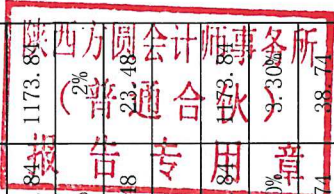 陕西方圆会计师事务所
（普通合伙）
报告专用章
1173.84
2%
23.48
1173.84
3.30%
38.74